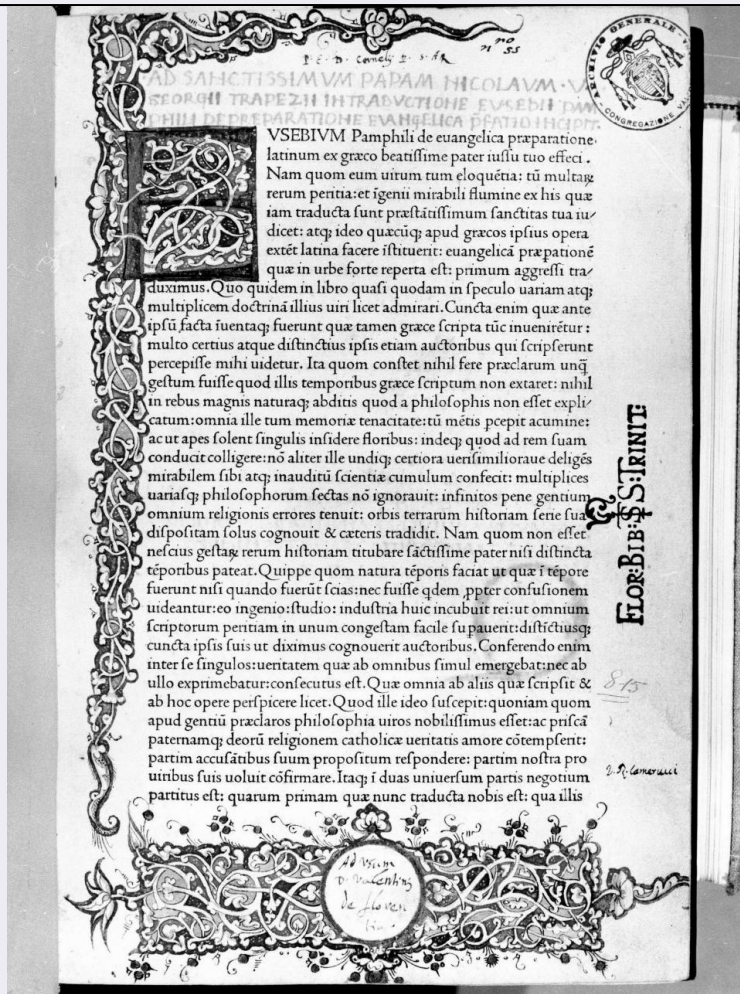 AD SANCTISSIMVM PAPAM NICOLAVM · V
GEORGII TRAPEZII IN TRADVCTIONE EVSEBII PAM
PHILI DE PREPARATIONE EVANGELICA PFATIO INCIPIT.
VSEBIVM Pamphili de euangelica præparatione
latinum ex græco beatiſſime pater iuſſu tuo effeci .
Nam quom eum uirum tum eloquētia: tū multaꝝ
rerum peritia: et īgenii mirabili flumine ex his quæ
iam traducta ſunt præſtātiſſimum ſanctitas tua iu/
dicet: atq; ideo quæcūq; apud græcos ipſius opera
extēt latina facere īſtituerit: euangelicā præpationē
quæ in urbe forte reperta eſt: primum aggreſſi tra/
duximus. Quo quidem in libro quaſi quodam in ſpeculo uariam atq;
multiplicem doctrinā illius uiri licet admirari. Cuncta enim quæ ante
ipſū facta īuentaq; fuerunt quæ tamen græce ſcripta tūc inuenirētur :
multo certius atque diſtinctius ipſis etiam auctoribus qui ſcripſerunt
percepiſſe mihi uidetur. Ita quom conſtet nihil fere præclarum unq̄
geſtum fuiſſe quod illis temporibus græce ſcriptum non extaret: nihil
in rebus magnis naturaq; abditis quod a philoſophis non eſſet expli/
catum: omnia ille tum memoriæ tenacitate: tū mētis pcepit acumine:
ac ut apes ſolent ſingulis inſidere floribus: indeq; quod ad rem ſuam
conducit colligere: nō aliter ille undiq; certiora ueriſimilioraue deligēs
mirabilem ſibi atq; inauditū ſcientiæ cumulum confecit: multiplices
uariaſq; philoſophorum ſectas nō ignorauit: infinitos pene gentium
omnium religionis errores tenuit: orbis terrarum hiſtoriam ſerie ſua
diſpoſitam ſolus cognouit & cæteris tradidit. Nam quom non eſſet
neſcius geſtaꝝ rerum hiſtoriam titubare ſāctiſſime pater niſi diſtincta
tēporibus pateat. Quippe quom natura tēporis faciat ut quæ ī tēpore
fuerunt niſi quando fuerūt ſcias: nec fuiſſe qdem ꝓpter confuſionem
uideantur: eo ingenio: ſtudio: induſtria huic incubuit rei: ut omnium
ſcriptorum peritiam in unum congeſtam facile ſupauerit: diſtictiusq;
cuncta ipſis ſuis ut diximus cognouerit auctoribus. Conferendo enim
inter ſe ſingulos: ueritatem quæ ab omnibus ſimul emergebat: nec ab
ullo exprimebatur: conſecutus eſt. Quæ omnia ab aliis quæ ſcripſit &
ab hoc opere perſpicere licet. Quod ille ideo ſuſcepit: quoniam quom
apud gentiū præclaros philoſophia uiros nobiliſſimus eſſet: ac priſcā
paternamq; deorū religionem catholicæ ueritatis amore cōtempſerit:
partim accuſātibus ſuum propoſitum reſpondere: partim noſtra pro
uiribus ſuis uoluit cōfirmare. Itaq; ī duas uniuerſum partis negotium
partitus eſt: quarum primam quæ nunc traducta nobis eſt: qua illis
Ad Vsum
D. Valentini
de floren
tia
FLOR: BIB: S: TRINIT:
815
ARCHIVIO GENERALE
CONGREGAZIONE